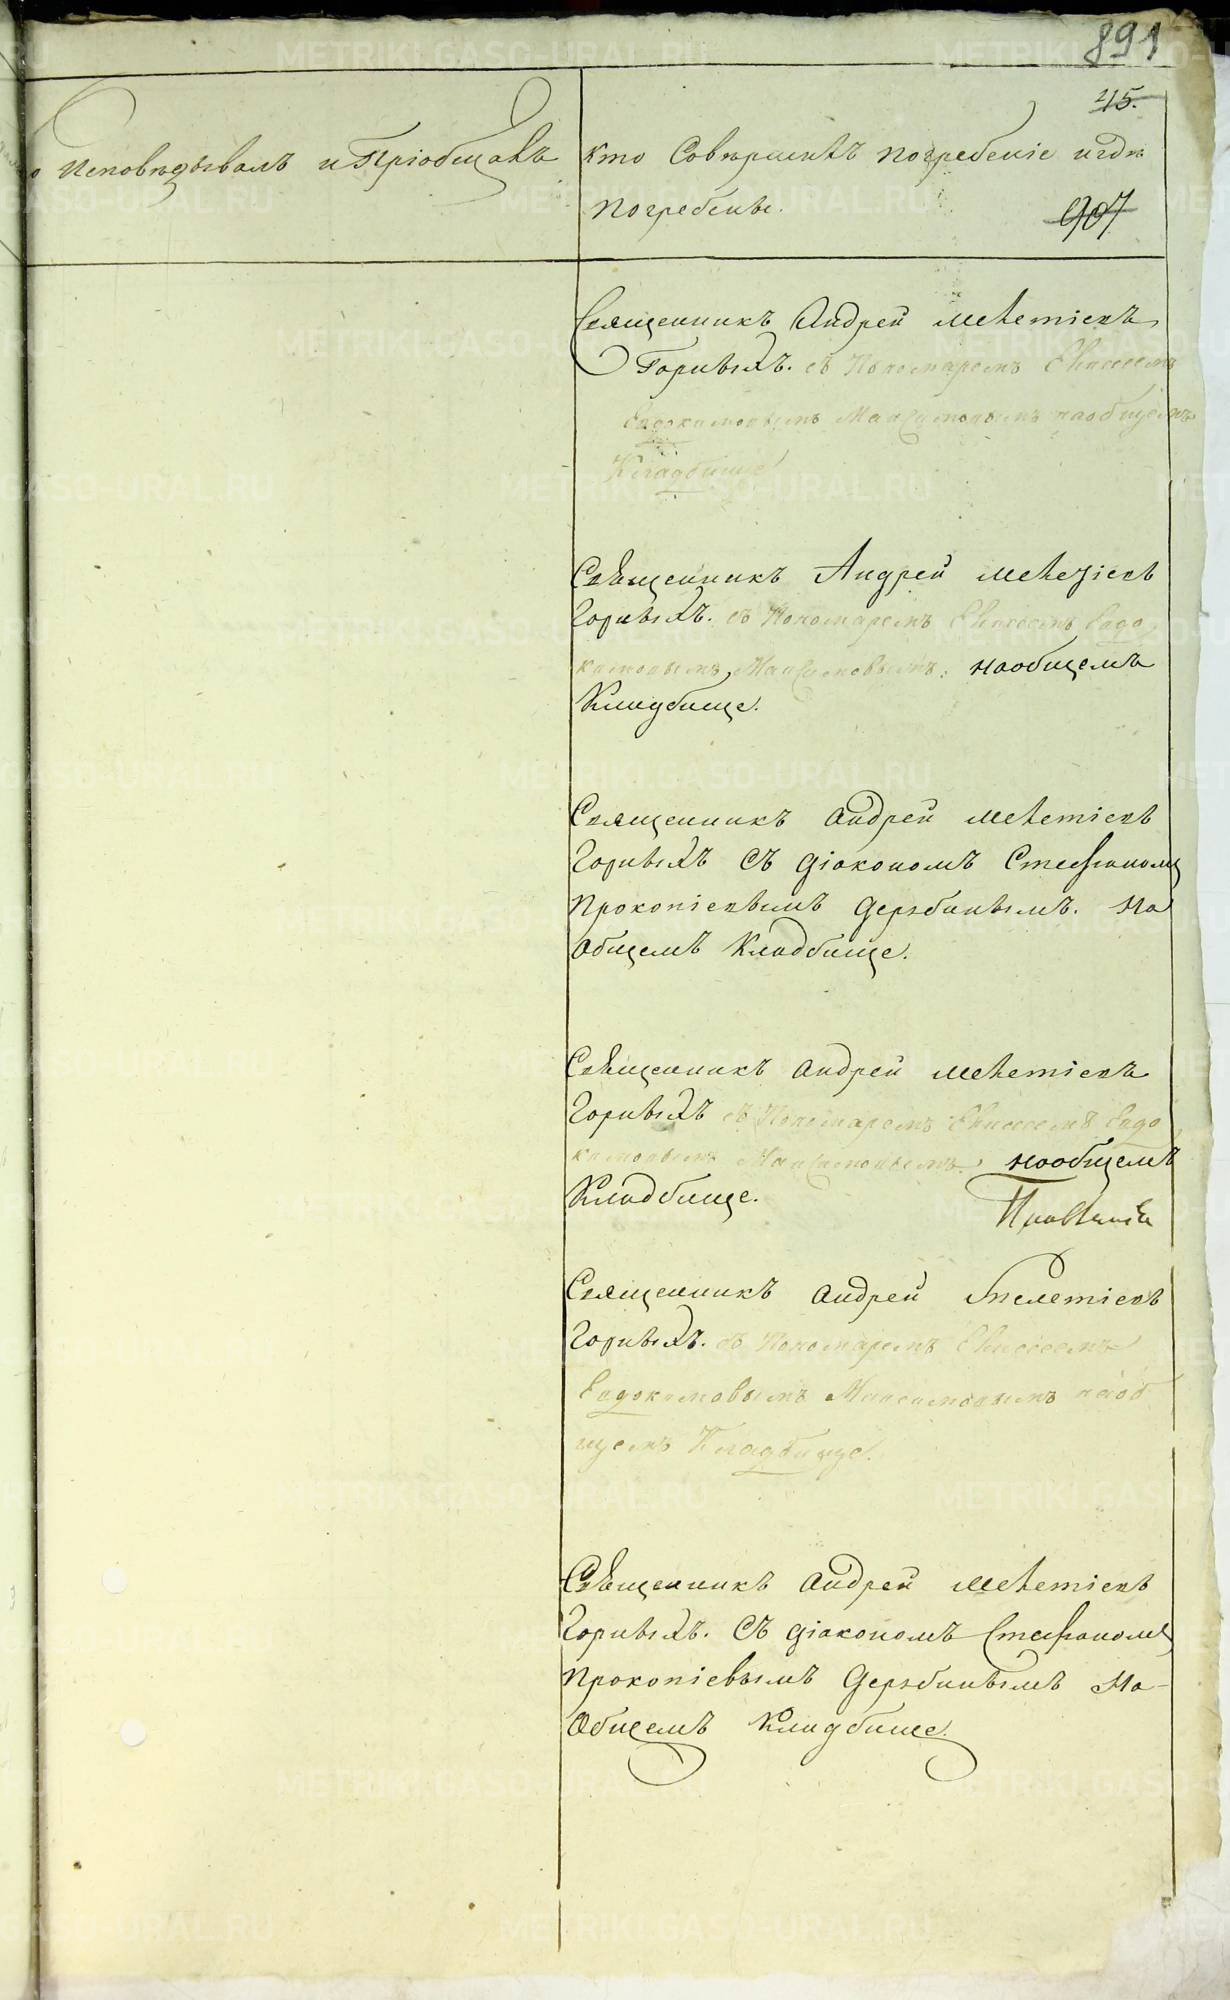 891
45.
Исповѣдывалъ и Пріобщалъ
Кто Совершалъ погребеніе и гдѣ
погребены.
907
Священникъ Андрей мелетіевъ
Горныхъ. съ Пономаремъ Елисеемъ
Евдокимовымъ Максимовымъ на общемъ
Кладбище
Священникъ Андрей мелетіевъ
Горныхъ. съ Пономаремъ Елисеемъ Евдо
кимовымъ Максимовымъ. на общемъ
Кладбище.
Священникъ Андрей мелетіевъ
Горныхъ Съ діакономъ Стефаномъ
Прокопіевымъ Дерябинымъ. На
Общемъ Кладбище.
Священникъ Андрей мелетіевъ
Горныхъ съ Пономаремъ Елисеемъ Евдо
кимовымъ Максимовымъ. на общемъ
Кладбище.
Священникъ Андрей Мелетіевъ
Горныхъ. съ Пономаремъ Елисеемъ
Евдокимовымъ Максимовымъ на об
щемъ Кладбище.
Священникъ Андрей мелетіевъ
Горныхъ. Съ діакономъ Стефаномъ
Прокопіевымъ Дерябинымъ На
Общемъ Кладбище.